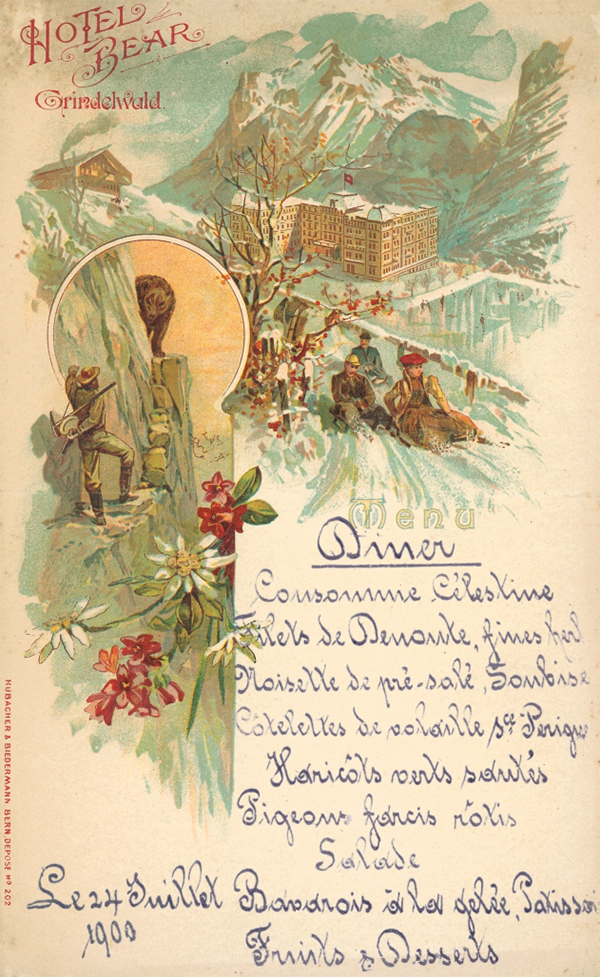 HOTEL
BEAR
Grindelwald.
Menu
Diner
Consomme Célestine
Filets de Denoute, fines herb
Noisette de pré-salé, Soubise
Côtelettes de volaille sce Perigu
Haricôts verts sautés
Pigeons farcis rôtis
Salade
Bavarois à la gelée, Patisseri
Fruits & Desserts
Le 24 Juillet
1900
HUBACHER & BIEDERMANN BERN. DEPOSÉ No 202